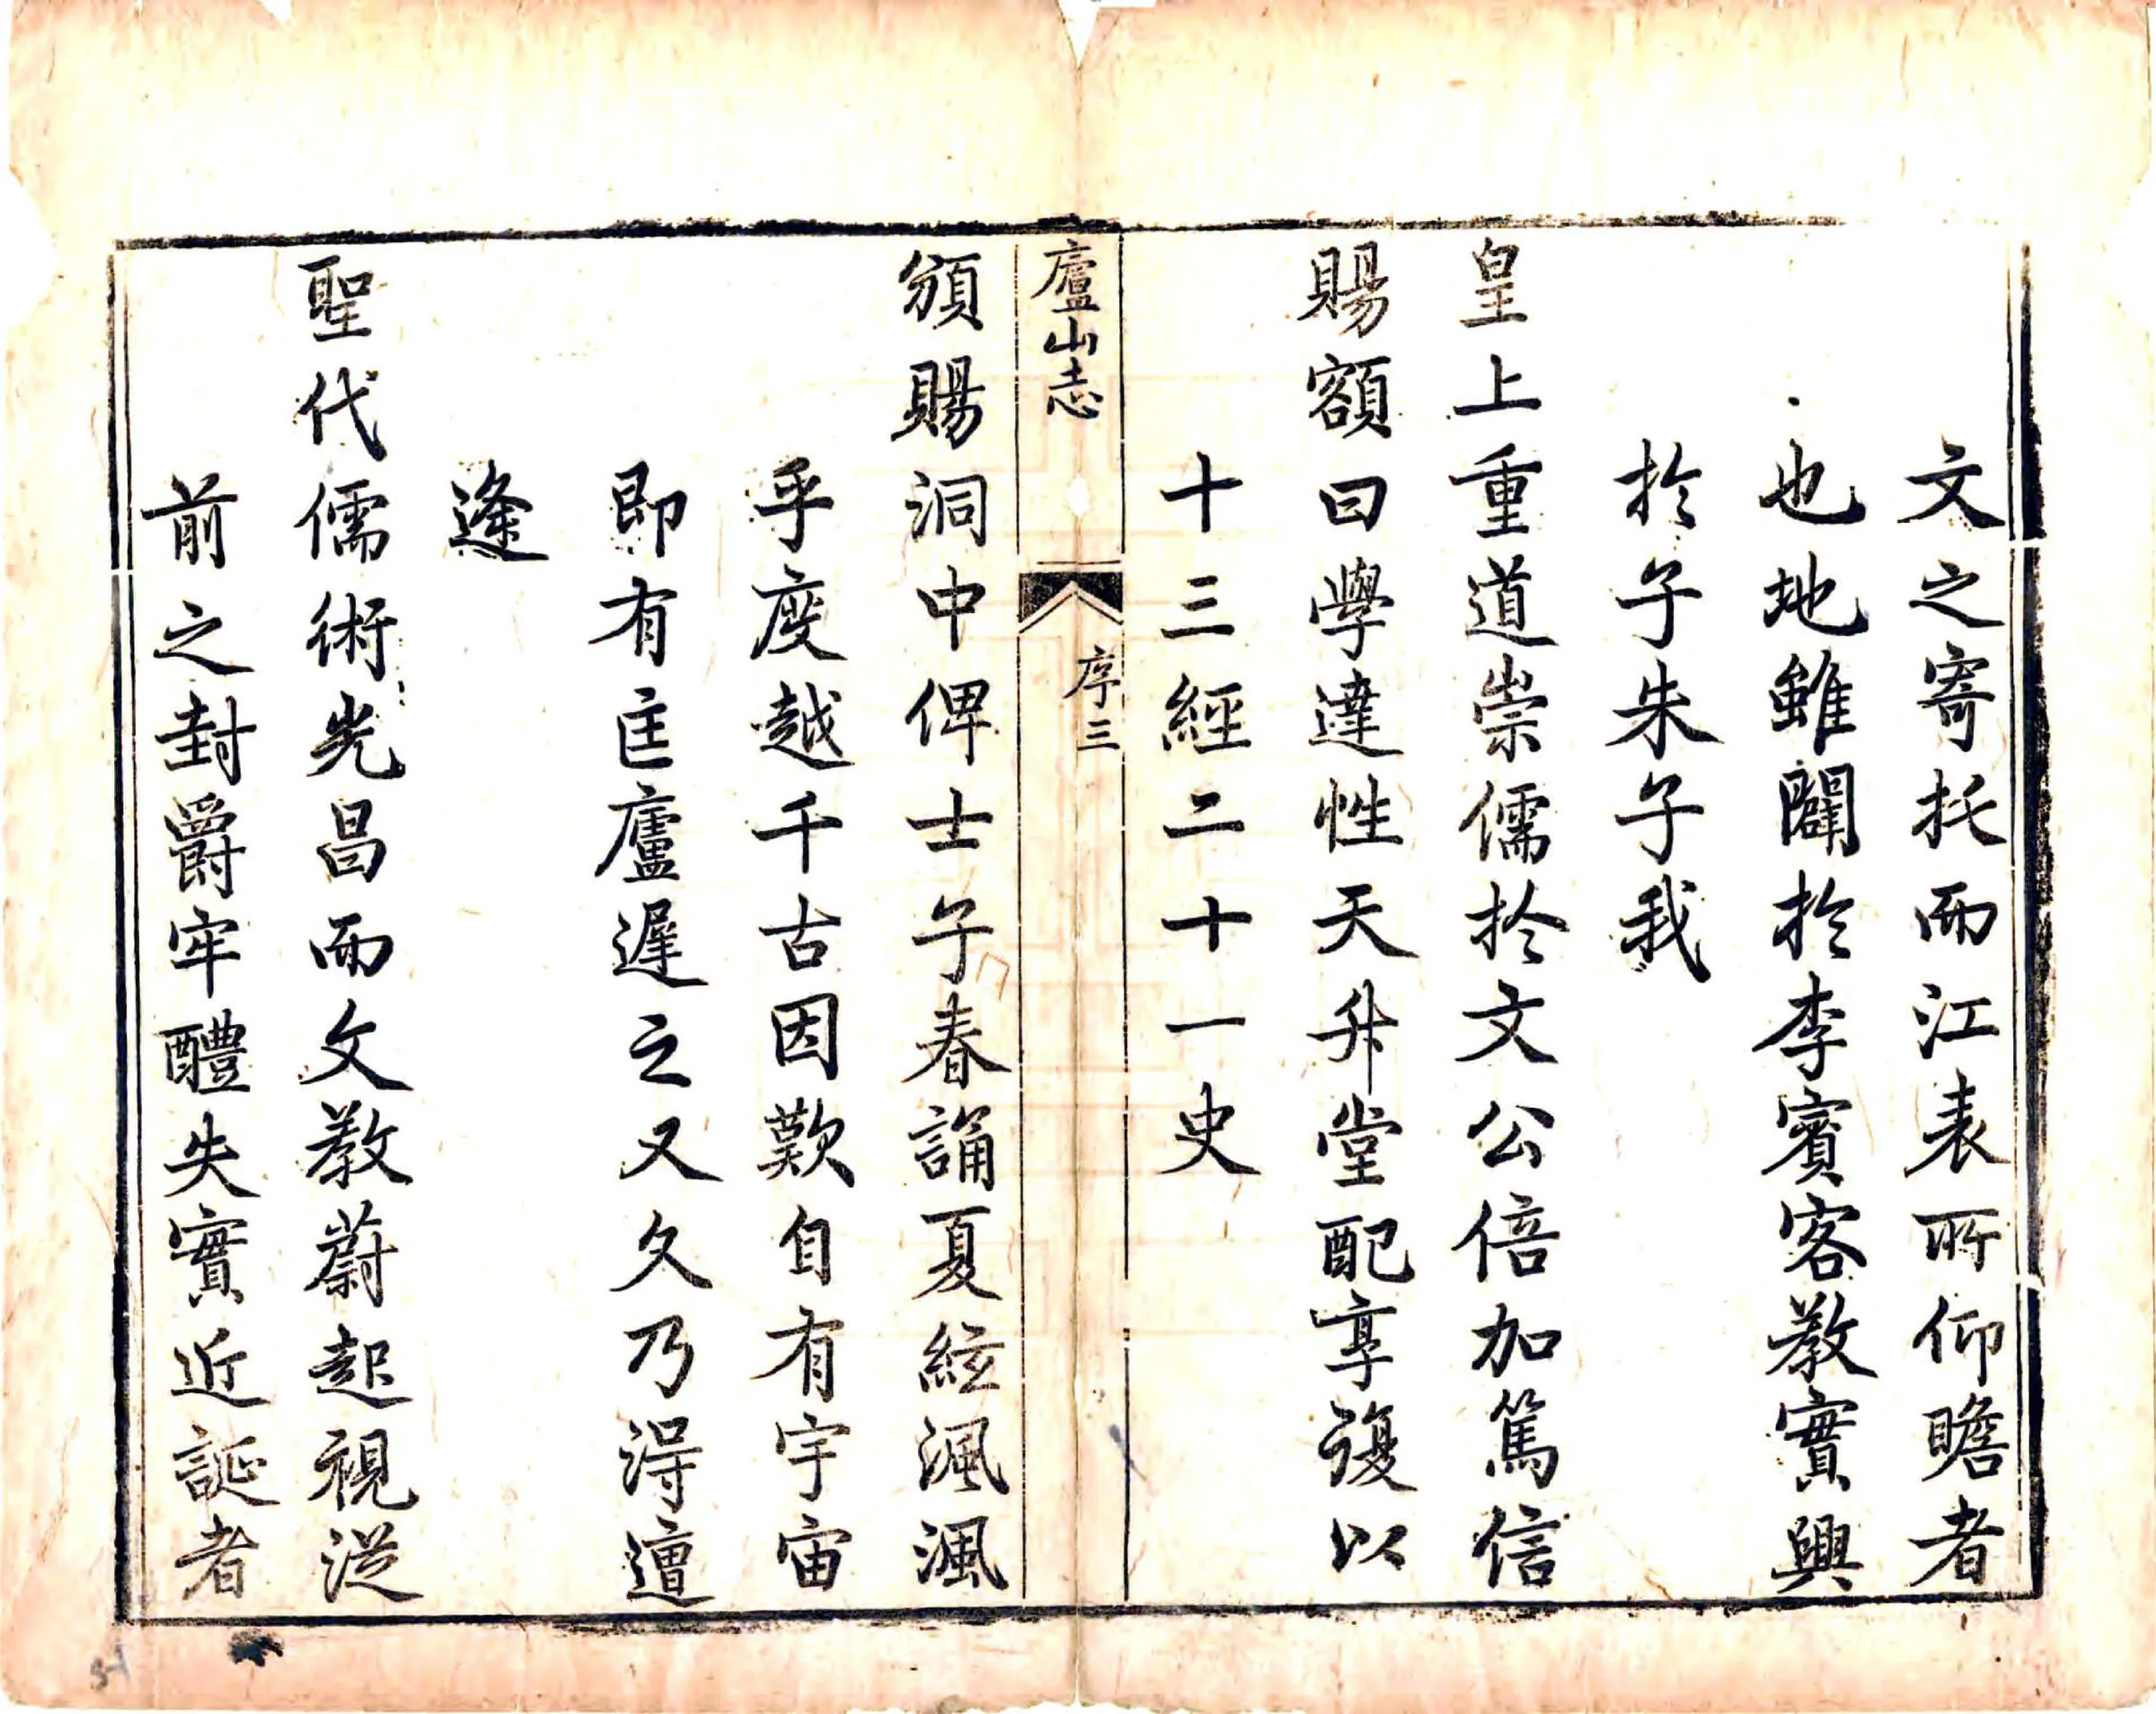 文之寄托而江表所仰瞻者
也地雖闢於李賓客教實興
於子朱子我
皇上重道崇儒於文公倍加篤信
賜額曰學達性天升堂配享復以
十三經二十一史
廬山志
序三
頒賜洞中俾士子春誦夏絃渢渢
乎度越千古因歎自有宇宙
即有匡廬遲之又久乃得邅
逢
聖代儒術光昌而文教蔚起視從
前之封爵牢醴失實近誕者